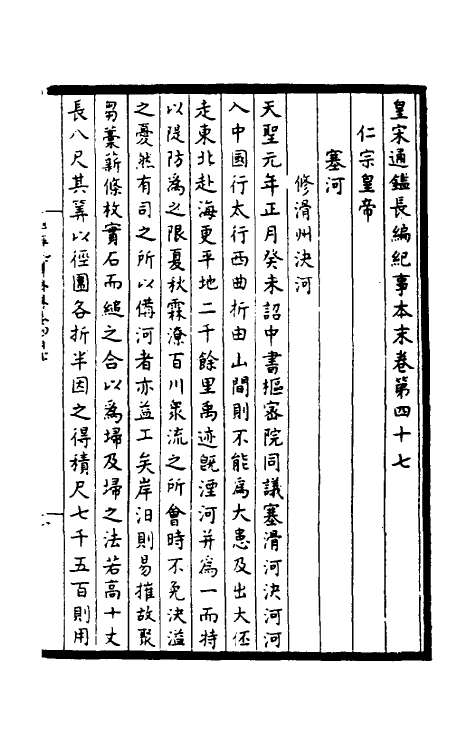 皇宋通鑑長編紀事本末卷第四十七
仁宗皇帝
塞河
修滑州決河
天聖元年正月癸未詔中書樞密院同議塞滑河決河河
入中國行太行西曲折由山間則不能為大患及出大伾
走東北赴海更平地二千餘里禹迹既湮河并為一而特
以隄防為之限夏秋霖潦百川衆流之所會時不免決溢
之憂然有司之所以備河者亦益工矣岸汨則易摧故聚
芻藁薪條枚實石而縋之合以為埽及埽之法若高十丈
長八尺其筭以徑圍各折半因之得積尺七千五百則用